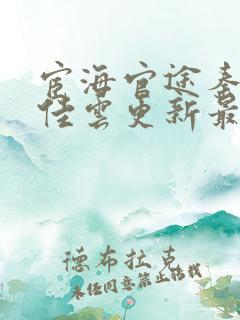 宦海官途秦
佳雲更新最
德布拉克
未任同意禁止转载